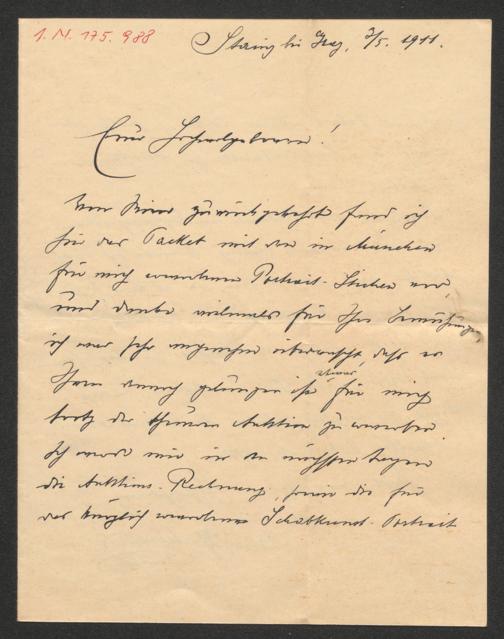 I. N. 175.988
Stainz bei Graz, 3/5. 1911.
Euer Hochwolgeboren!
Von Wien zurückgekehrt fand ich
hier das Packet mit den in München
für mich erworbenen Portrait-Stichen vor,
und danke vielmals für Ihre Bemühungen
ich war sehr angenehm überrascht, dass es
Ihnen dennoch gelungen ist etwas für mich
trotz der theuren Auktion zu erwerben.
Ich erwarte nur in den nächsten Tagen
die Auktions-Rechnung, sowie die für
das kürzlich erworbene Schabkunst-Portrait